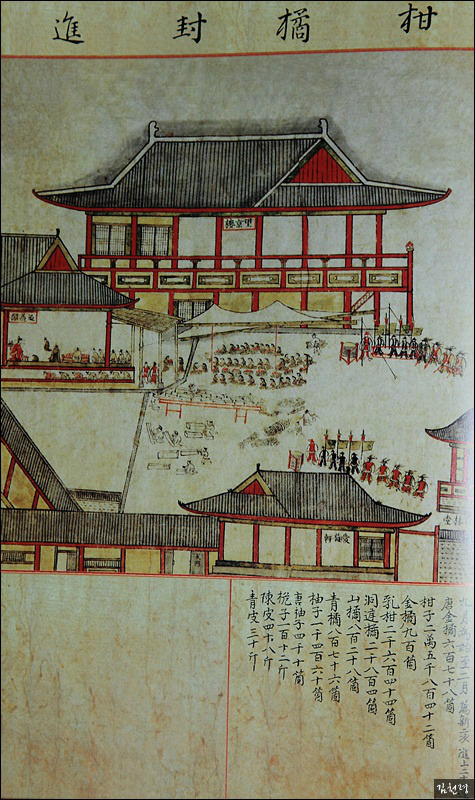 柑橘封進
望京樓
愛梅軒
唐金橘六百七十八箇
柑子二萬五千八百四十二箇
金橘九百箇
乳柑二千六百四十四箇
洞庭橘二千八百四箇
山橘八百二十八箇
青橘八百七十六箇
柚子一千四百六十箇
唐柚子四千十箇
梔子一百十二斤
陳皮四十八斤
青皮三十斤
김천령